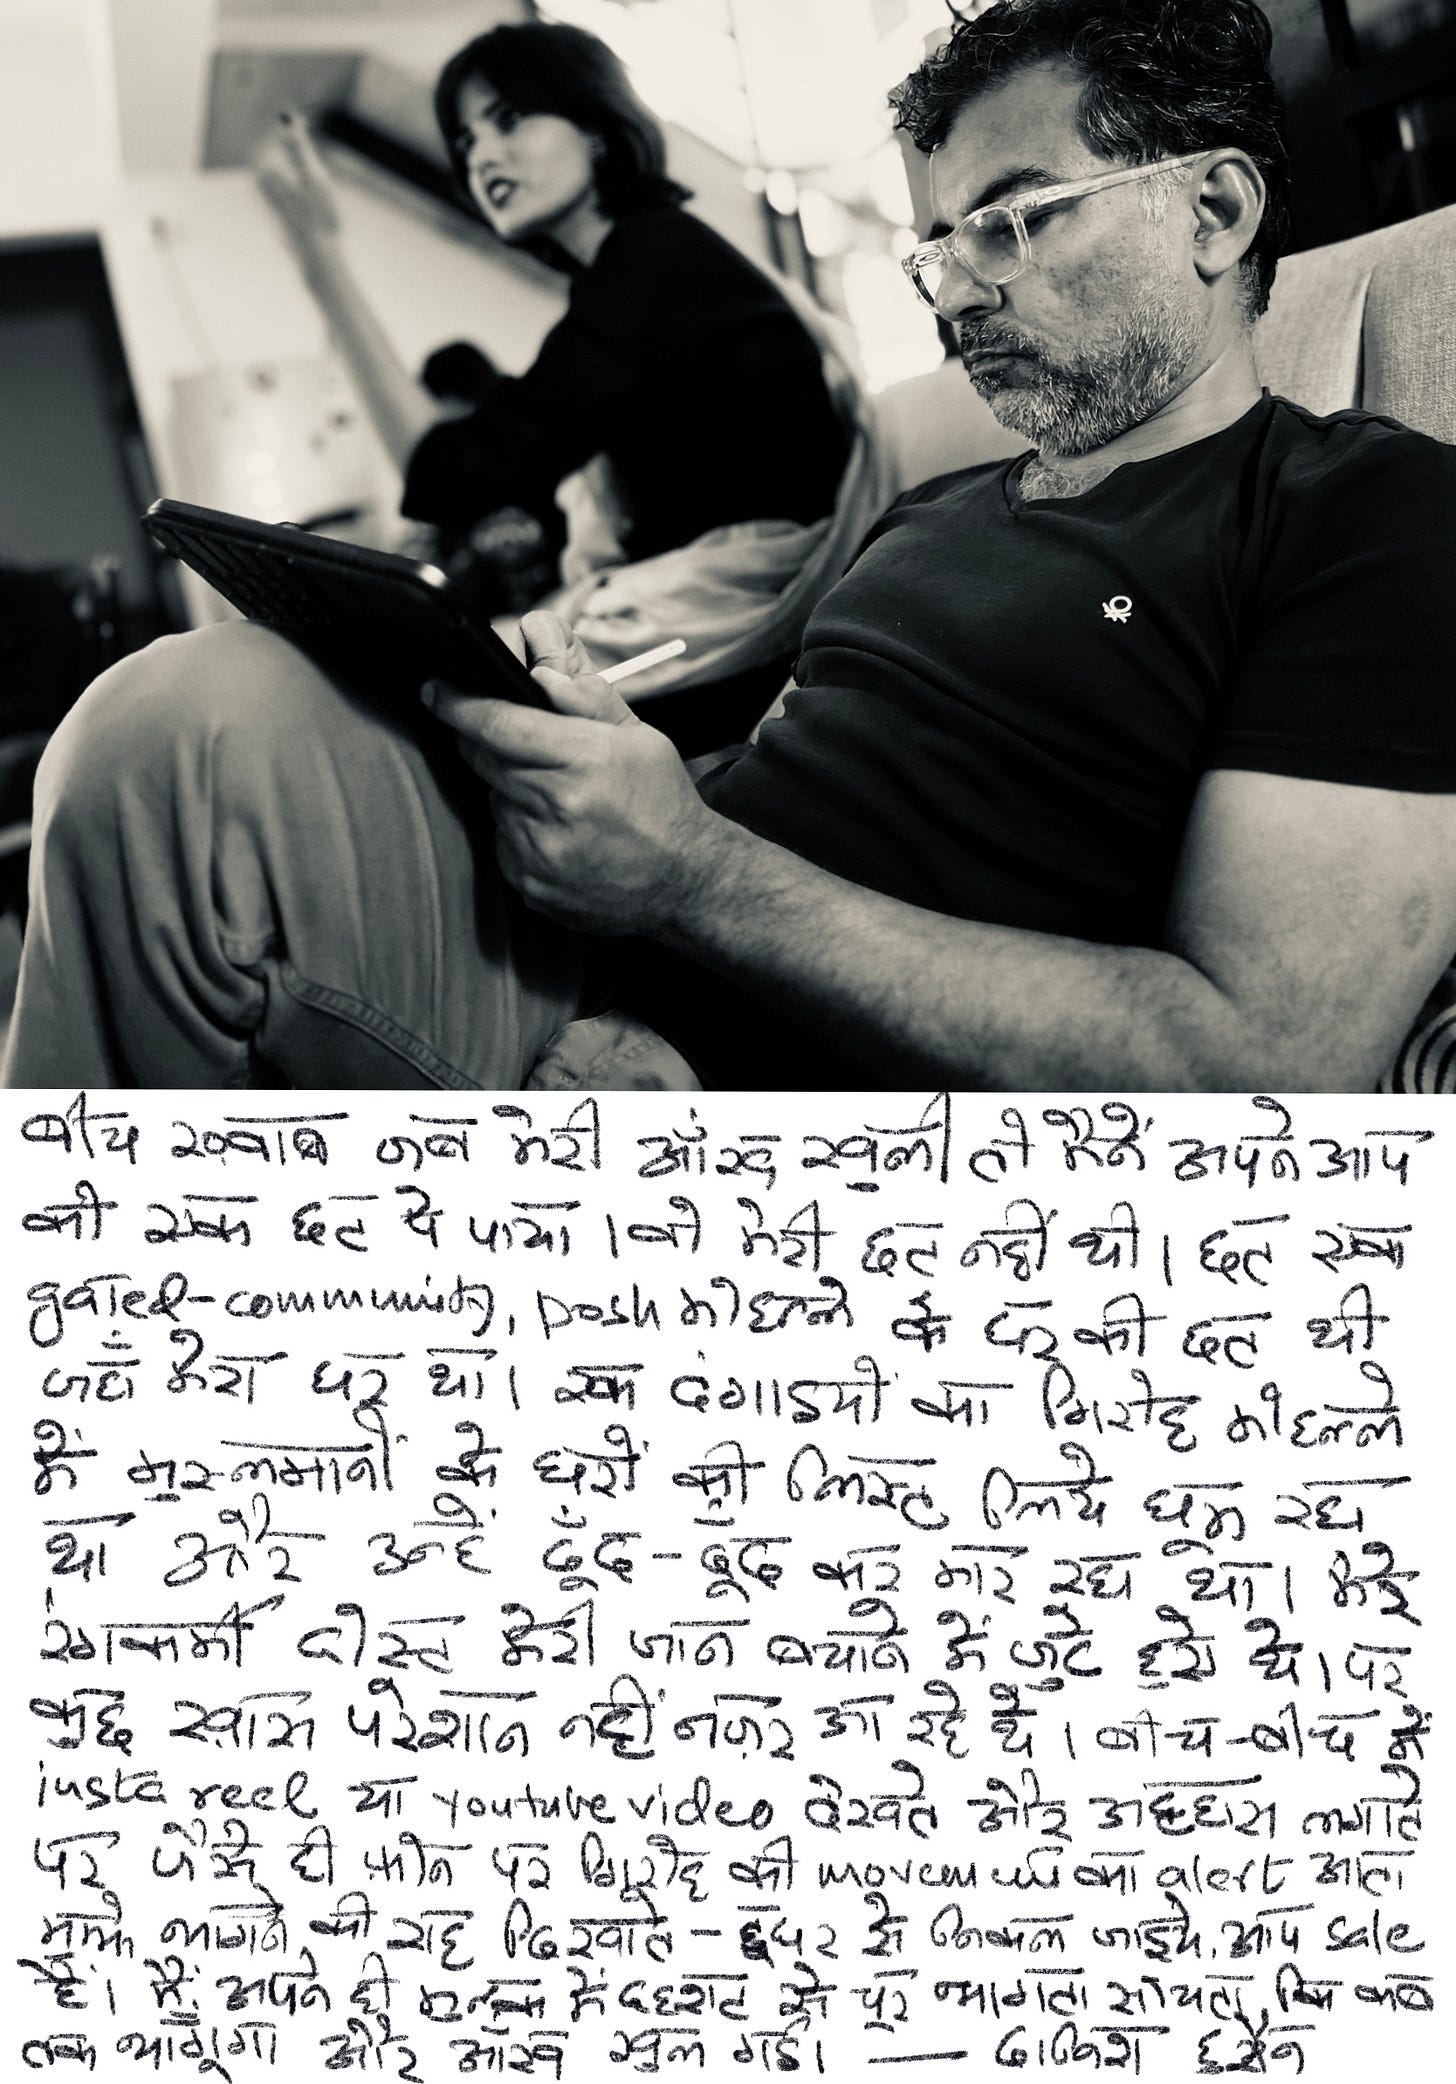 बीच ख़्वाब जब मेरी आँख खुली तो मैंने अपने आप
को एक छत पे पाया । वो मेरी छत नहीं थी । छत एक
gated-community, posh मोहल्ले के घर की छत थी
जहाँ मेरा घर था । एक दंगाइयों का गिरोह मोहल्ले
में मुसलमानों के घरों की लिस्ट लिये घूम रहा
था और उन्हें ढूँढ-ढूँढ कर मार रहा था । मेरे
रंगकर्मी दोस्त मेरी जान बचाने में जुटे हुये थे । पर
कुछ ख़ास परेशान नहीं नज़र आ रहे थे । बीच-बीच में
insta reel या youtube video देखते और अट्टहास लगाते
पर जैसे ही फ़ोन पर गिरोह की movement का alert आता
मुझे भागने की राह दिखाते - इधर से निकल जाइये, आप safe
हैं । मैं अपने ही मुल्क में दहशत से चूर भागता सोचता, कि कब
तक भागूँगा और आँख खुल गई । — दानिश हुसैन